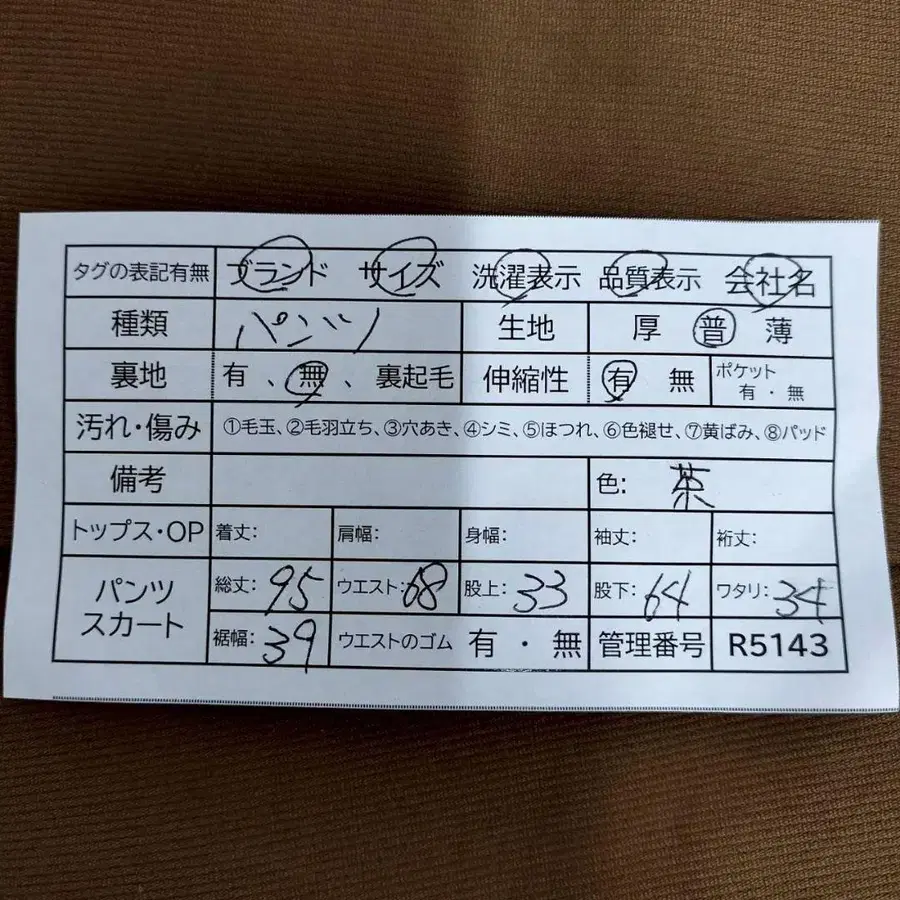 タグの表記有無 ブランド サイズ 洗濯表示 品質表示 会社名
種類 パンツ 生地 厚 普 薄
裏地 有 、無 、裏起毛 伸縮性 有 無 ポケット 有・無
汚れ・傷み ①毛玉、②毛羽立ち、③穴あき、④シミ、⑤ほつれ、⑥色褪せ、⑦黄ばみ、⑧パッド
備考 色: 茶
トップス・OP 着丈: 肩幅: 身幅: 袖丈: 裄丈:
パンツ スカート 総丈: 95 ウエスト: 68 股上: 33 股下: 64 ワタリ: 34
裾幅: 39 ウエストのゴム 有 ・ 無 管理番号 R5143